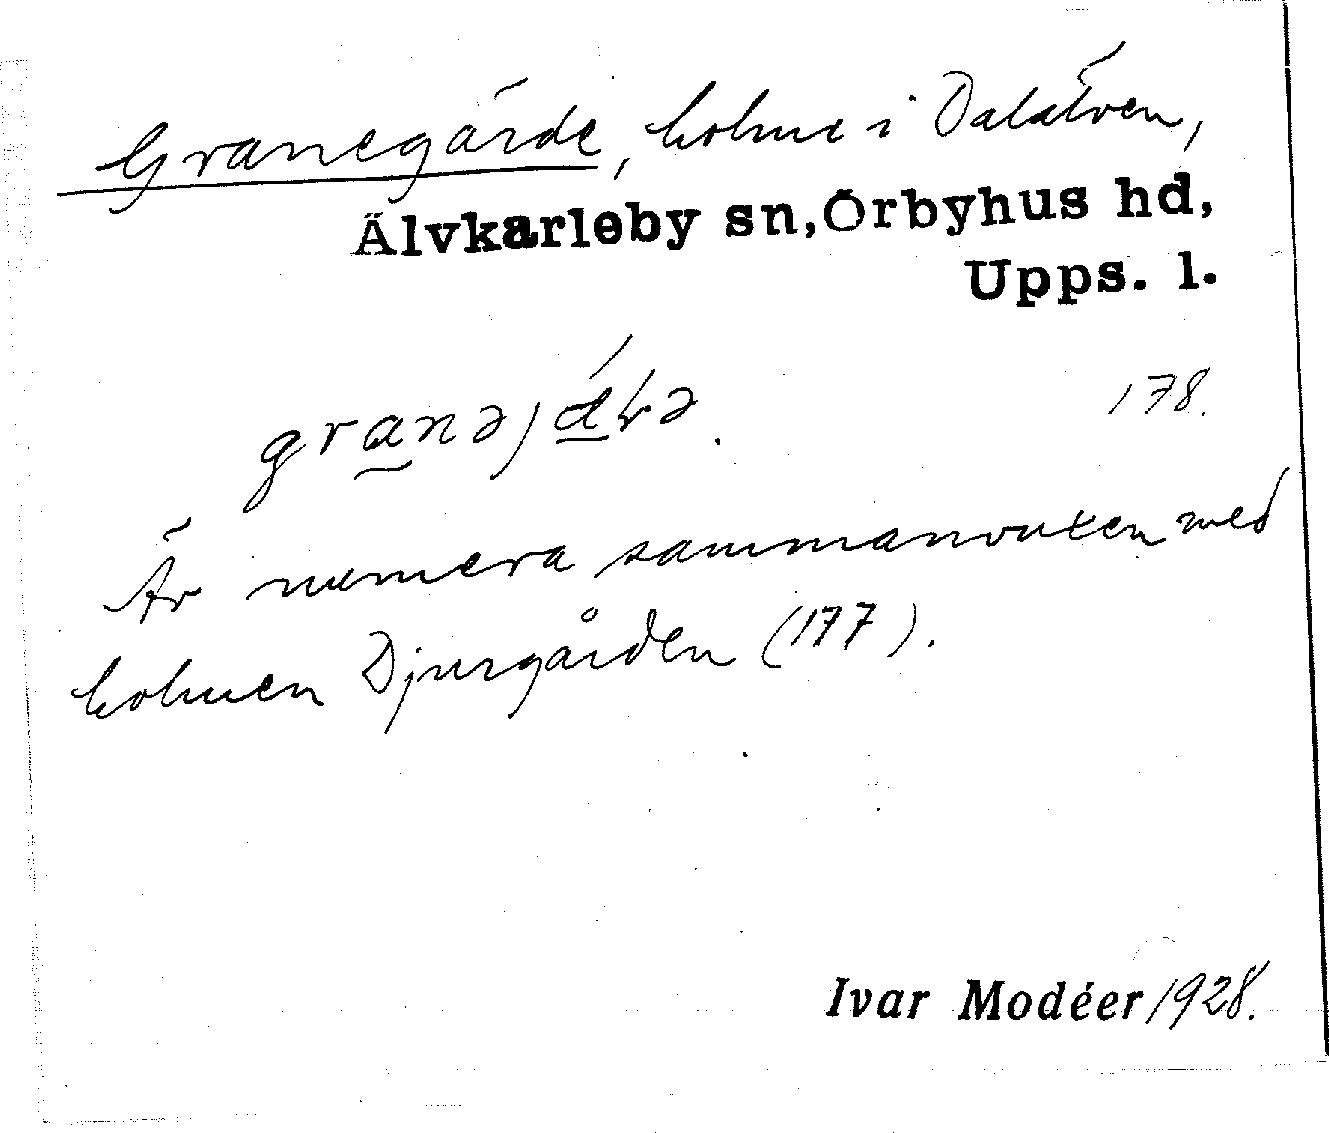 Granegärde, holme i Dalälven,
Älvkarleby sn, Örbyhus hd,
Upps. l.
178.
Är numera sammanvuxen med
holmen Djurgården (177).
Ivar Modéer 1928.